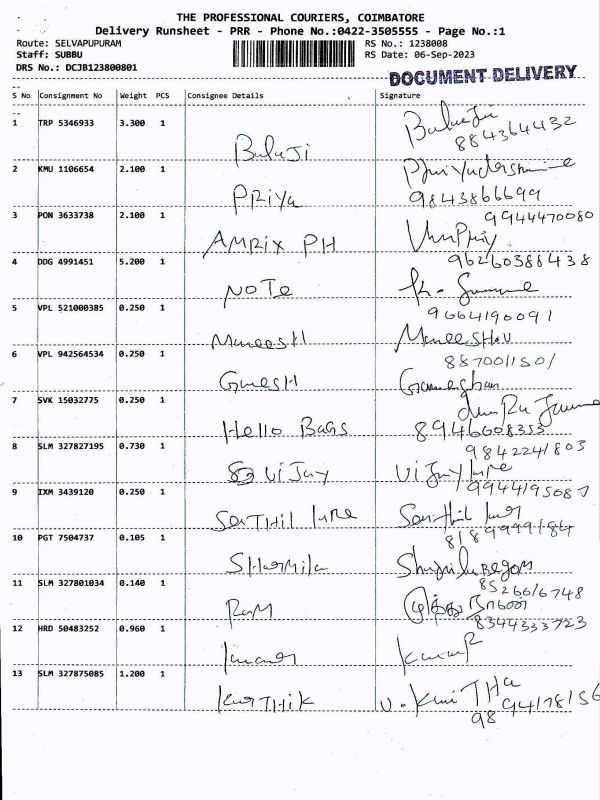 THE PROFESSIONAL COURIERS, COIMBATORE
Delivery Runsheet - PRR - Phone No.:0422-3505555 - Page No.:1
Route: SELVAPUPURAM RS No.: 1238008
Staff: SUBBU RS Date: 06-Sep-2023
DRS No.: DCJB123800801
DOCUMENT DELIVERY
S No Consignment No Weight PCS Consignee Details Signature
1 TRP 5346933 3.300 1
BalaJi 884364432
2 KMU 1106654 2.100 1
PRiYa 9843866699
3 PON 3633738 2.100 1 9944470080
AMRIX PH
4 DDG 4991451 5.200 1 96260388438
NOTE
5 VPL 521000385 0.250 1 9664190091
ManeesH ManeeSH.U
6 VPL 942564534 0.250 1 887001150/
GaneSH Ganeshan
7 SVK 15032775 0.250 1
Hello BaGS 8946608353
8 SLM 327827195 0.730 1 9842241803
ViJay ViJay
9 IXM 3439120 0.250 1 9944195087
SenTHil Senthil
10 PGT 7504737 0.105 1 8189999184
SHarmila
11 SLM 327801034 0.140 1 8526616748
RaM
12 HRD 50483252 0.960 1 8344333723
Kumar Kumar
13 SLM 327875085 1.200 1
KarTHiK 9894178156